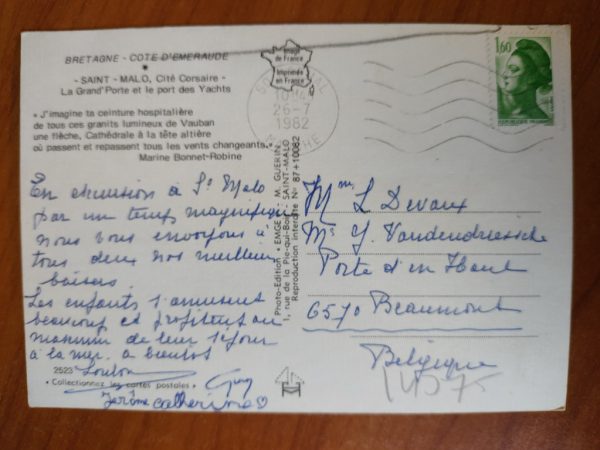 BRETAGNE - COTE D'EMERAUDE
- SAINT - MALO, Cité Corsaire -
La Grand'Porte et le port des Yachts
« J'imagine ta ceinture hospitalière
de tous ces granits lumineux de Vauban
une flèche, Cathédrale à la tête altière
où passent et repassent tous les vents changeants. »
Marine Bonnet-Robine
En excursion à St Malo
par un temps magnifique
nous vous envoyons à
tous deux nos meilleurs
baisers.
Les enfants s'amusent
beaucoup et profitent au
maximum de leur séjour
à la mer. à bientôt
2523
« Collectionnez les cartes postales »
Guy
Jérôme Catherine
Image
de France
Imprimée
en France
26-7
1982
MANCHE
1,60
Photo-Edition « EMGE » - M. GUERIN
1, rue de la Pie-qui-Boit - SAINT-MALO
Reproduction interdite No 87+10082
Mme L Devaux
Mr Y. Vandendriessche
Porte d'en Haut
6570 Beaumont
Belgique